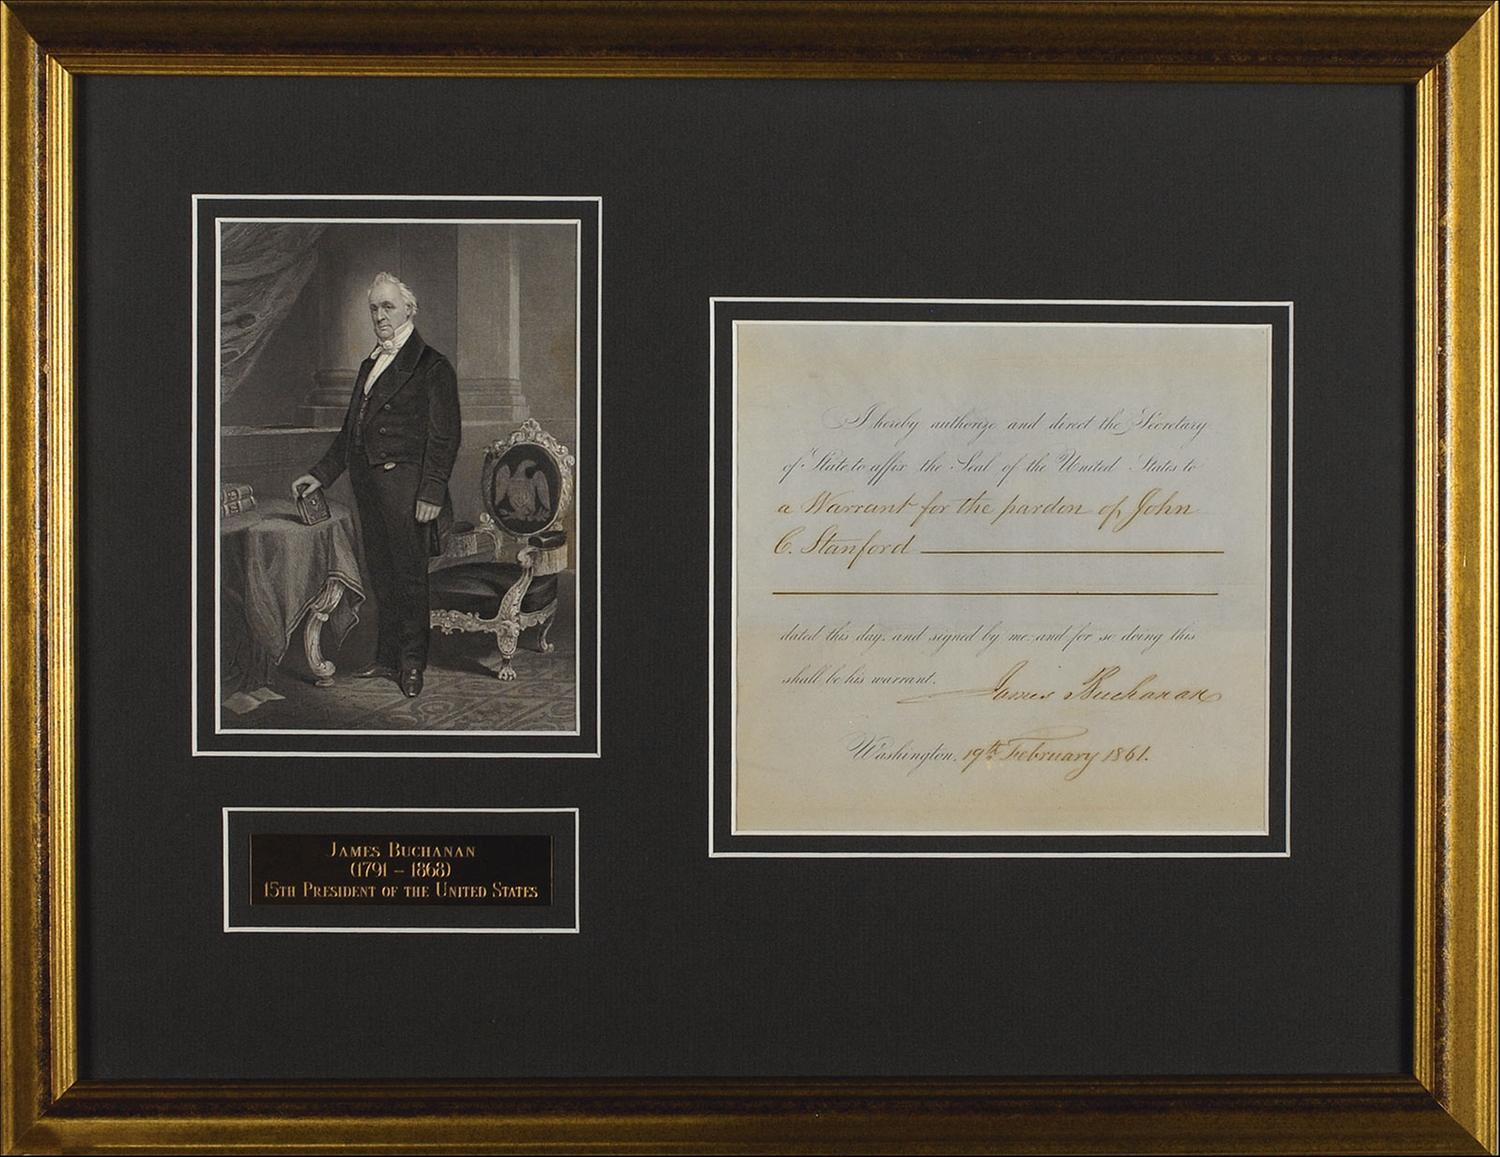 James Buchanan
(1791 – 1868)
15th President of the United States
I hereby authorize and direct the Secretary
of State to affix the Seal of the United States to
a Warrant for the pardon of John
C. Stanford
dated this day, and signed by me and for so doing this
shall be his warrant.
James Buchanan
Washington, 19th February 1861.